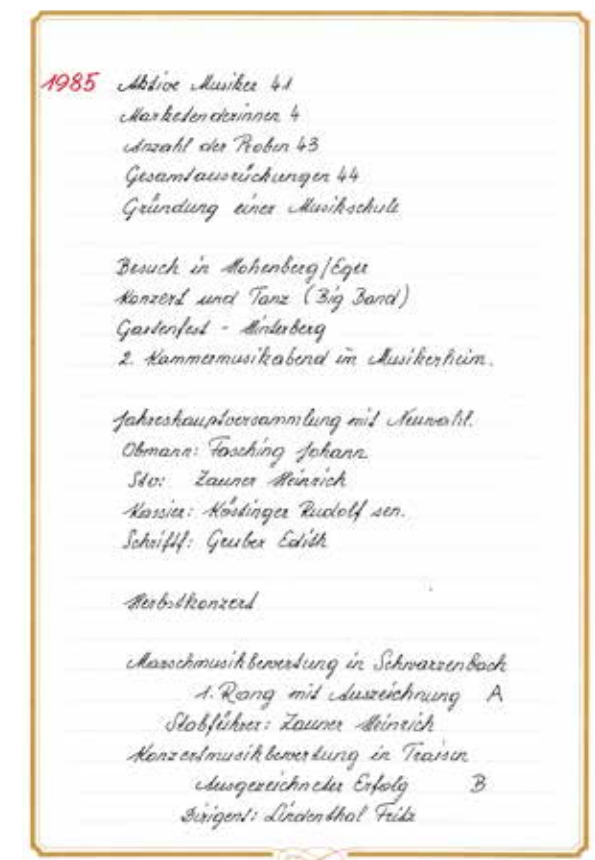 1985 Aktive Musiker 41
Marketenderinnen 4
Anzahl der Proben 43
Gesamtausrückungen 44
Gründung einer Musikschule
Besuch in Hohenberg/Eger
Konzert und Tanz (Big Band)
Gartenfest - Hinterberg
2. Kammermusikabend im Musikerheim.
Jahreshauptversammlung mit Neuwahl.
Obmann: Fasching Johann
Stv: Zauner Heinrich
Kassier: Köstinger Rudolf sen.
Schriftf: Gruber Edith
Herbstkonzert
Marschmusikbewertung in Schwarzenbach
1. Rang mit Auszeichnung A
Stabführer: Zauner Heinrich
Konzertmusikbewertung in Traisen
Ausgezeichneter Erfolg B
Dirigent: Lindenthal Fritz